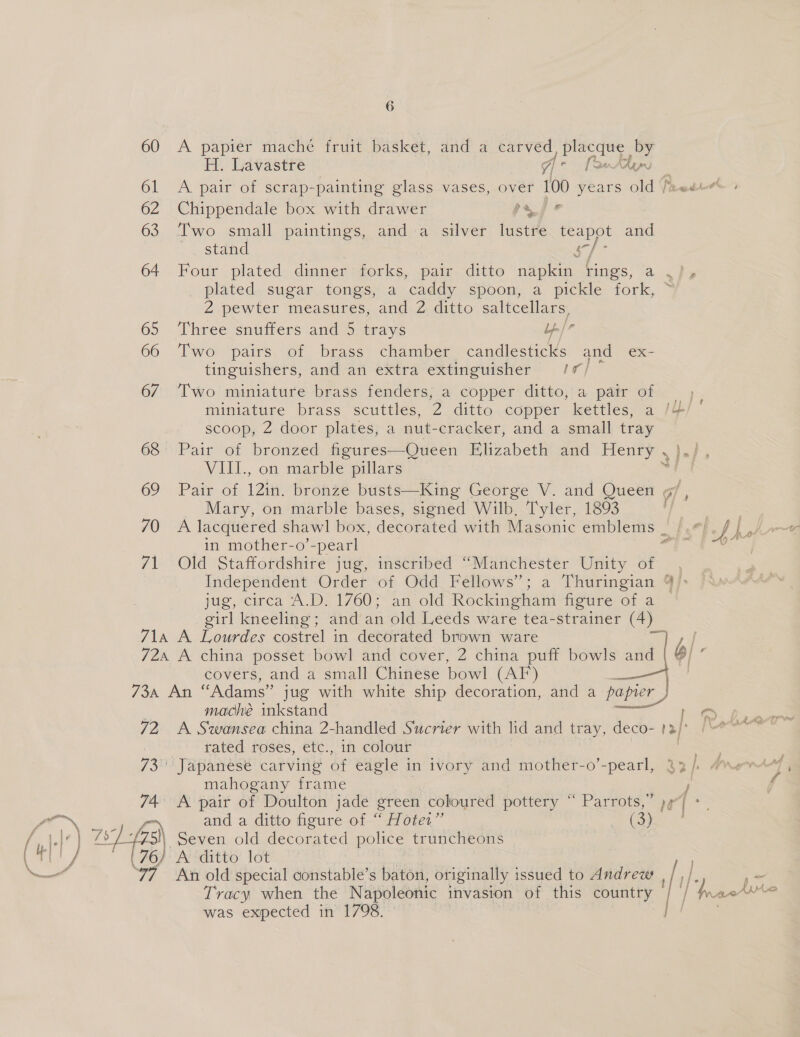 6
60 A papier maché fruit basket, and a carved placque by
H. Lavastre
61 A pair of scrap-painting glass vases, over 100 years old
62 Chippendale box with drawer
63 Two small paintings, and a silver lustre teapot and
stand
64 Four plated dinner forks, pair ditto napkin rings, a
plated sugar tongs, a caddy spoon, a pickle fork,
2 pewter measures, and 2 ditto saltcellars
65 Three snuffers and 5 trays
66 Two pairs of brass chamber candlesticks and ex-
tinguishers, and an extra extinguisher
67 Two miniature brass fenders, a copper ditto, a pair of
miniature brass scuttles, 2 ditto copper kettles, a
scoop, 2 door plates, a nut-cracker, and a small tray
68 Pair of bronzed figures—Queen Elizabeth and Henry
VIII., on marble pillars
69 Pair of 12in. bronze busts—King George V. and Queen
Mary, on marble bases, signed Wilb. Tyler, 1893
70 A lacquered shawl box, decorated with Masonic emblems
in mother-o'-pearl
71 Old Staffordshire jug, inscribed “Manchester Unity of
Independent Order of Odd Fellows”; a Thuringian
jug, circa A.D. 1760; an old Rockingham figure of a
girl kneeling; and an old Leeds ware tea-strainer (4)
71A A Lourdes costrel in decorated brown ware
72A A china posset bowl and cover, 2 china puff bowls and
covers, and a small Chinese bowl (AF)
73A An “Adams” jug with white ship decoration, and a papier
maché inkstand
72 A Swansea china 2-handled Sucrier with lid and tray, deco-
rated roses, etc., in colour
73 Japanese carving of eagle in ivory and mother-o'-pearl,
mahogany frame
74 A pair of Doulton jade green coloured pottery “Parrots,”
and a ditto figure of “Hotei” (3)
75 Seven old decorated police truncheons
76 A ditto lot
77 An old special constable's baton, originally issued to Andrew
Tracy when the Napoleonic invasion of this country
was expected in 1798.